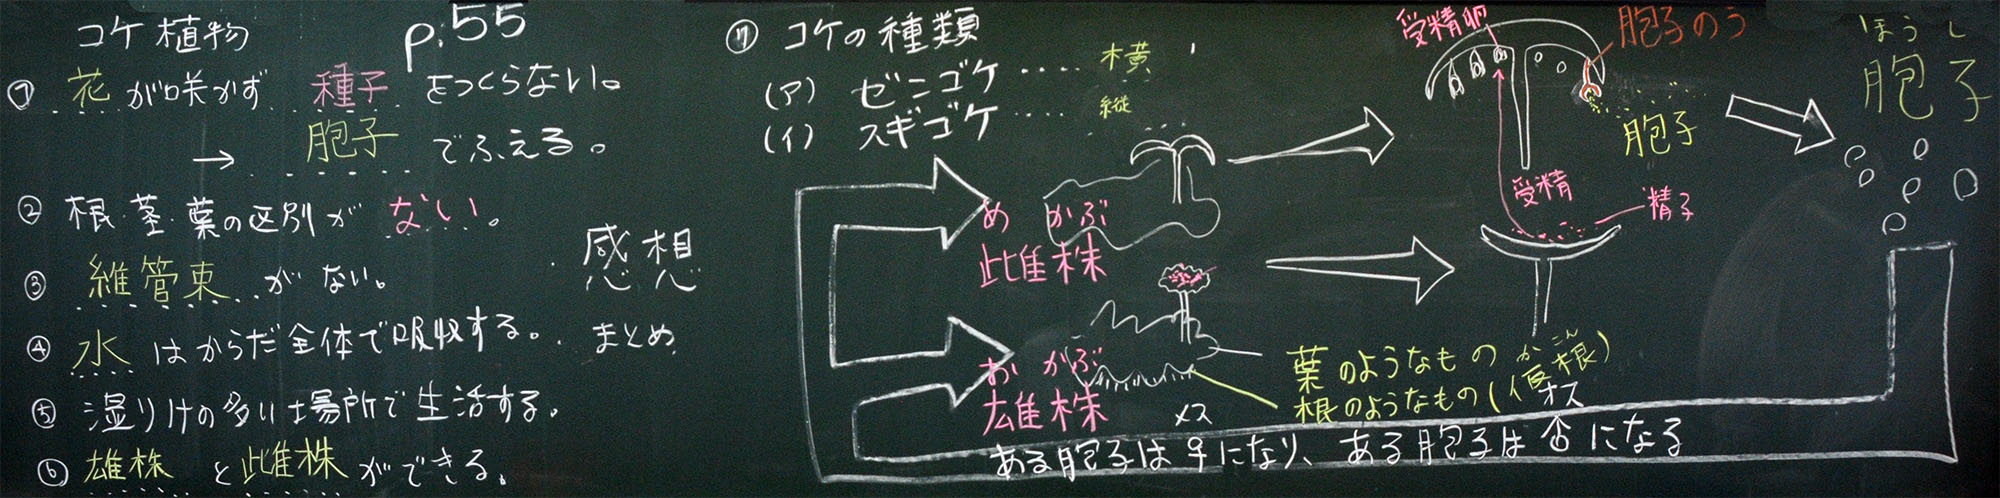 コケ植物 p.55
⑦ 花が咲かず 種子 をつくらない。
→ 胞子 でふえる。
② 根・茎・葉の区別が ない。
③ 維管束 がない。
④ 水 はからだ全体で吸収する。
⑤ 湿りけの多い場所で生活する。
⑥ 雄株 と 雌株 ができる。
感想
まとめ
⑦ コケの種類
(ア) ゼニゴケ ‥‥ 横
(イ) スギゴケ ‥‥ 縦
め かぶ
雌株
お かぶ
雄株
受精卵
胞子のう
胞子
受精
精子
ほうし
胞子
葉のようなもの
かこん
根のようなもの(仮根)
メス
オス
ある胞子は♀になり、ある胞子は♂になる